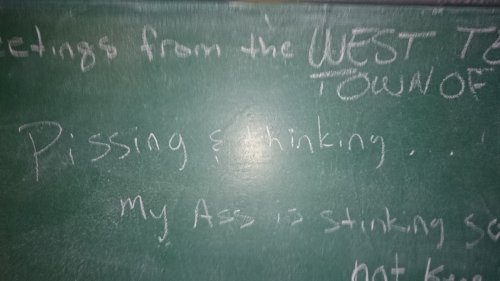 eetings from the WEST TE
TOWN OF
Pissing & thinking...
My Ass is stinking so
not